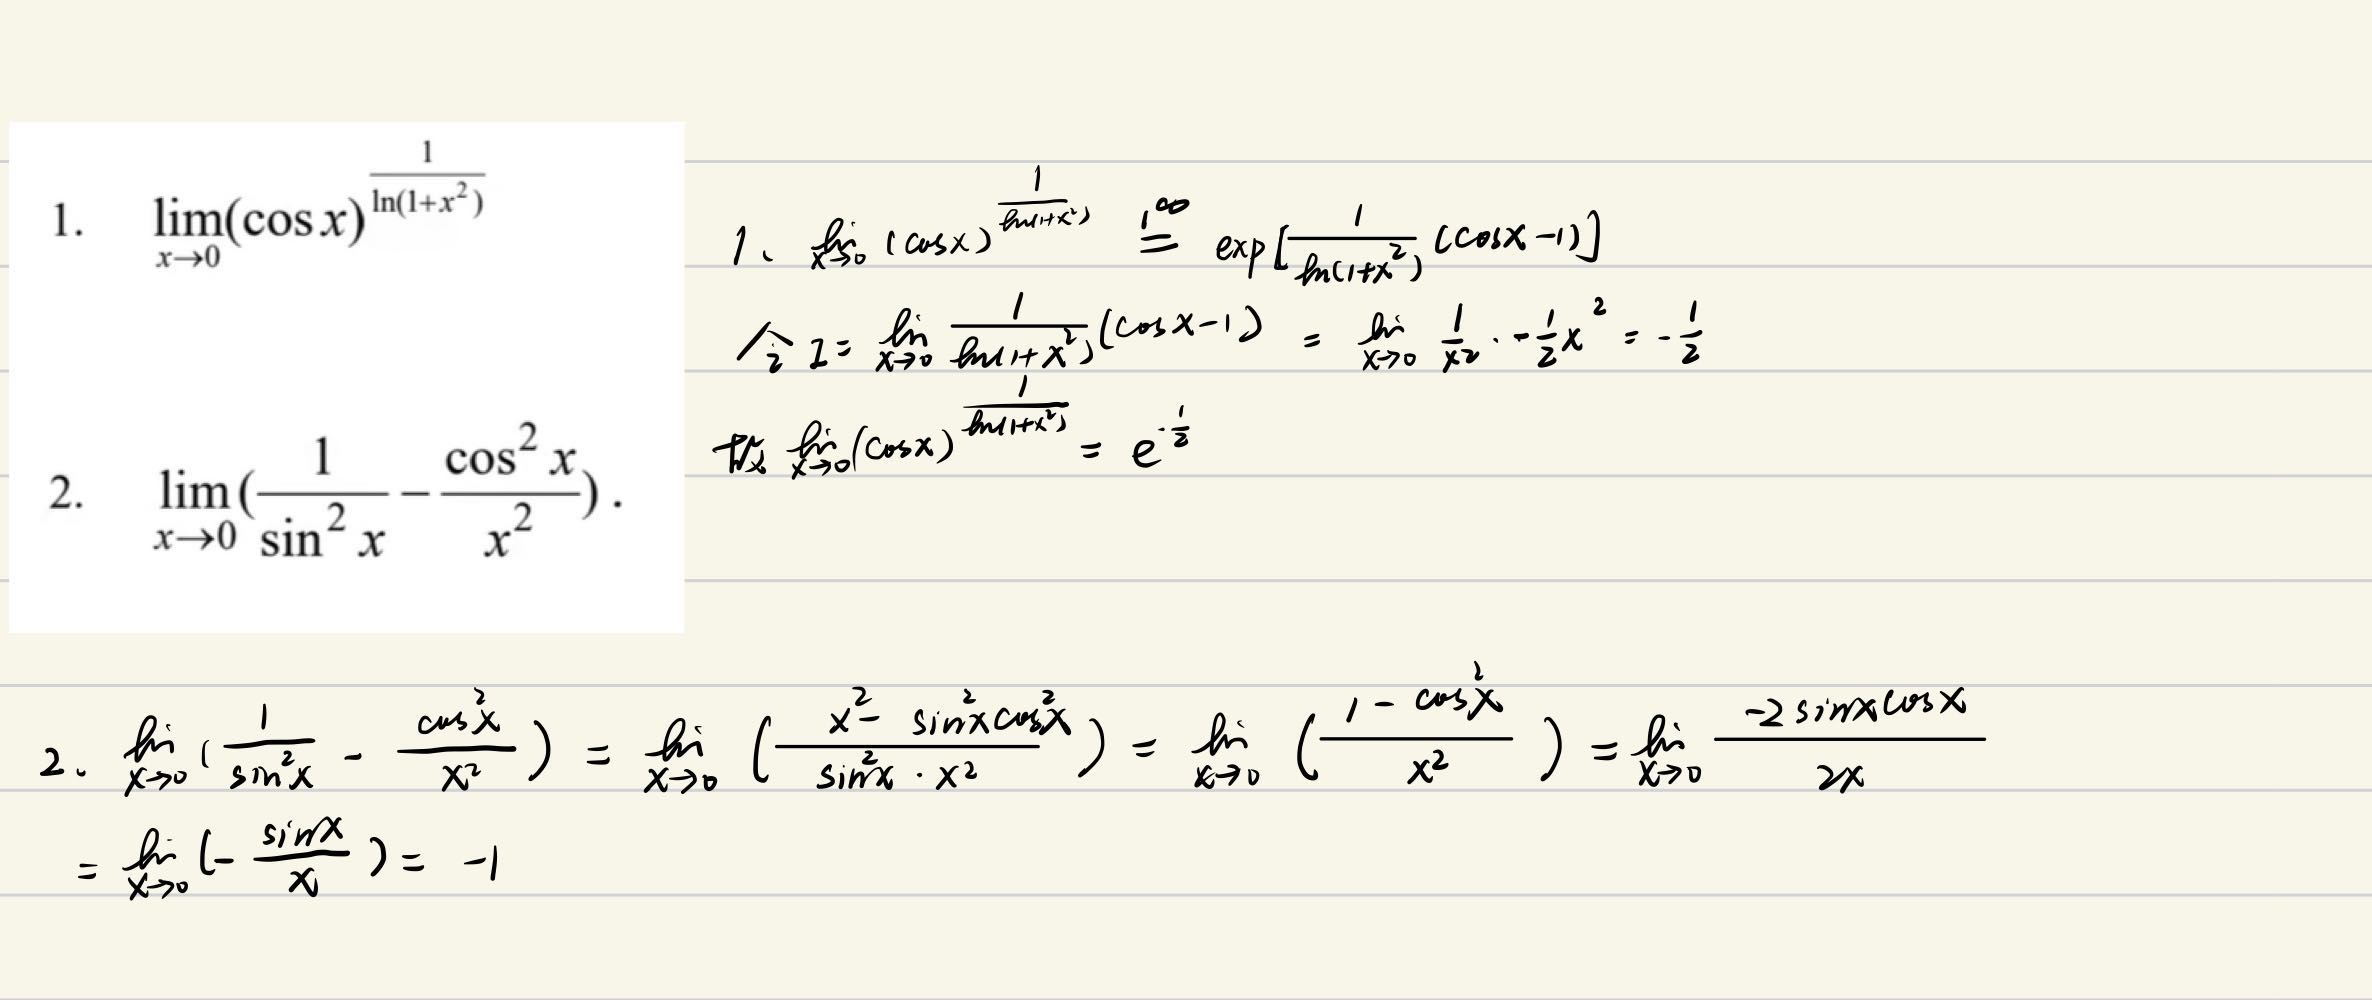 1. lim_{x→0} (cos x)^{\frac{1}{ln(1+x^2)}}
2. lim_{x→0} (\frac{1}{sin^2 x} - \frac{cos^2 x}{x^2}) .
1、 lim_{x→0} (cosx)^{\frac{1}{ln(1+x^2)}} \overset{1^∞}{=} exp[\frac{1}{ln(1+x^2)} (cosx-1)]
令 I = lim_{x→0} \frac{1}{ln(1+x^2)} (cosx-1) = lim_{x→0} \frac{1}{x^2} · -\frac{1}{2}x^2 = -\frac{1}{2}
故 lim_{x→0} (cosx)^{\frac{1}{ln(1+x^2)}} = e^{-\frac{1}{2}}
2、 lim_{x→0} (\frac{1}{sin^2x} - \frac{cos^2x}{x^2}) = lim_{x→0} (\frac{x^2 - sin^2x cos^2x}{sin^2x · x^2}) = lim_{x→0} (\frac{1 - cos^2x}{x^2}) = lim_{x→0} \frac{-2sinxcosx}{2x}
= lim_{x→0} (-\frac{sinx}{x}) = -1